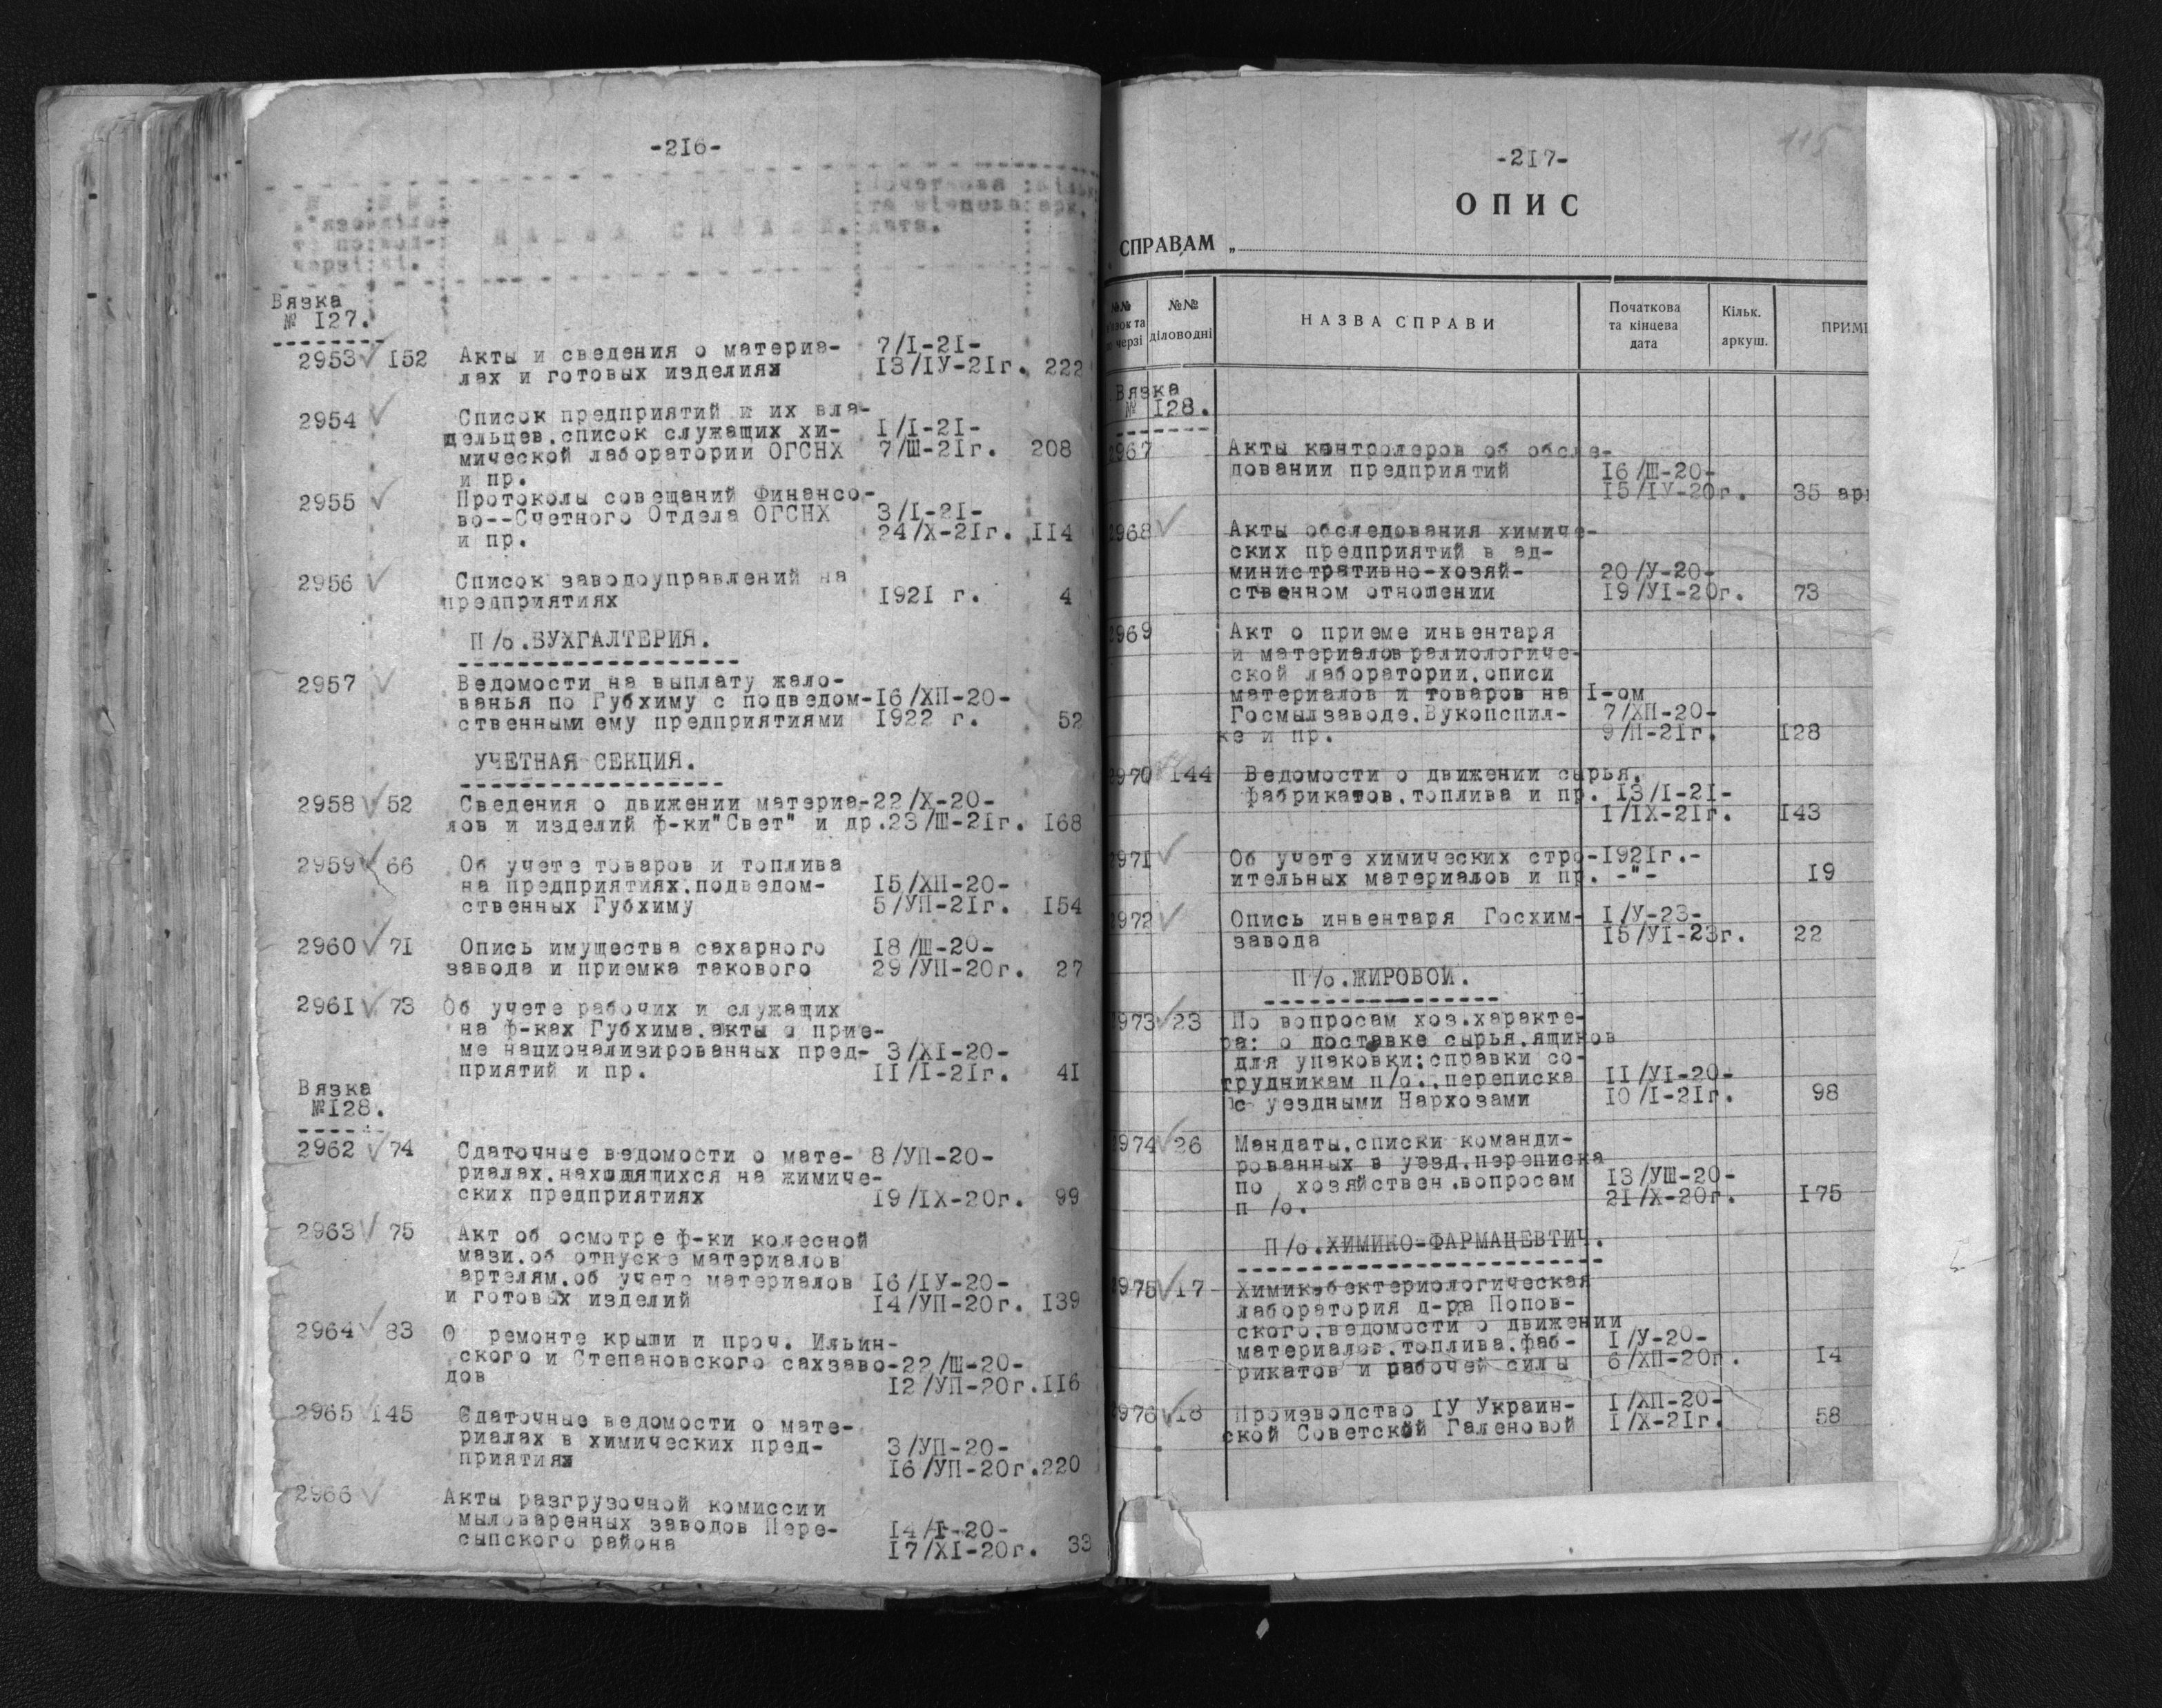 -216-
Вязка
№ 127.
2953 152 Акты и сведения о материа- 7/I-21-
лах и готовых изделиях 13/IУ-21г. 222
2954 Список предприятий и их вла-
дельцев.список служащих хи- I/I-21-
мической лаборатории ОГСНХ 7/Ш-21г. 208
и пр.
2955 Протоколы совещаний Финансо-
во--Счетного Отдела ОГСНХ 3/I-21-
и пр. 24/Х-21г. 114
2956 Список заводоуправлений на
предприятиях 1921 г. 4
П/о.БУХГАЛТЕРИЯ.
2957 Ведомости на выплату жало-
ванья по Губхиму с подведом- 16/ХП-20-
ственными ему предприятиями 1922 г. 52
УЧЕТНАЯ СЕКЦИЯ.
2958 52 Сведения о движении материа- 22/Х-20-
лов и изделий ф-ки"Свет" и др. 23/Ш-21г. 168
2959 66 Об учете товаров и топлива
на предприятиях.подведом- 15/ХП-20-
ственных Губхиму 5/УП-21г. 154
2960 71 Опись имущества сахарного 18/Ш-20-
завода и приемка такового 29/УП-20г. 27
2961 73 Об учете рабочих и служащих
на ф-ках Губхима.акты о прие-
ме национализированных пред- 3/ХI-20-
приятий и пр. II/I-21г. 41
Вязка
№128.
2962 74 Сдаточные ведомости о мате- 8/УП-20-
риалах.находящихся на жимиче-
ских предприятиях 19/IХ-20г. 99
2963 75 Акт об осмотре ф-ки колесной
мази.об отпуске материалов
артелям.об учете материалов 16/IУ-20-
и готовых изделий 14/УП-20г. 139
2964 83 О ремонте крыши и проч. Ильин-
ского и Степановского сахзаво- 22/Ш-20-
дов 12/УП-20г. 116
2965 145 Сдаточные ведомости о мате-
риалах в химических пред- 3/УП-20-
приятиях 16/УП-20г. 220
2966 Акты разгрузочной комиссии
мыловаренных заводов Пере- 14/I-20-
сыпского района 17/ХI-20г. 33
115
-217-
ОПИС
СПРАВАМ „
№№ №№ НАЗВА СПРАВИ Початкова Кільк.
та діловодні та кінцева аркуш.
черзі дата
Вязка
№ 128.
2967 Акты контролеров об обсле-
довании предприятий 16/Ш-20-
15/IУ-20г. 35
2968 Акты обследования химиче-
ских предприятий в ад-
министративно-хозяй- 20/У-20-
ственном отношении 19/УI-20г. 73
2969 Акт о приеме инвентаря
и материалов ралиологиче-
ской лаборатории.описи
материалов и товаров на I-ом
Госмылзаводе.Вукопспил- 7/ХП-20-
ке и пр. 9/П-21г. 128
2970 144 Ведомости о движении сырья.
фабрикатов.топлива и пр. 13/I-21-
I/IХ-21г. 143
2971 Об учете химических стро- 1921г.-
ительных материалов и пр. -"- 19
2972 Опись инвентаря Госхим- I/У-23-
завода 15/УI-23г. 22
П/о.ЖИРОВОЙ.
2973 23 По вопросам хоз.характе-
ра: о доставке сырья.ящиков
для упаковки:справки со-
трудникам п/о..переписка II/УI-20-
с уездными Нархозами 10/I-21г. 98
2974 26 Мандаты.списки команди-
рованных в уезд.переписка
по хозяйствен.вопросам 13/УШ-20-
п/о. 21/Х-20г. 175
П/о.ХИМИКО-ФАРМАЦЕВТИЧ.
2975 17 Химик.бектериологическая
лаборатория д-ра Попов-
ского.ведомости о движении
материалов.топлива.фаб- I/У-20-
рикатов и рабочей силы 6/ХП-20г. 14
2976 18 Производство IУ Украин- I/ХП-20-
ской Советской Галеновой I/Х-21г. 58